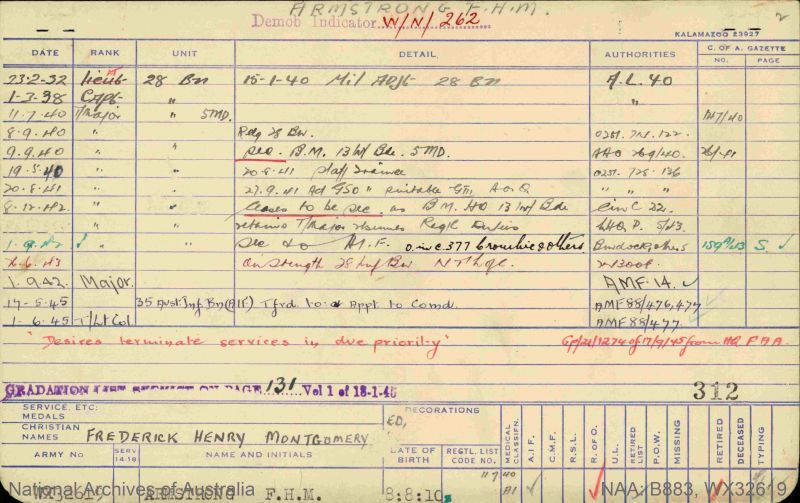 ARMSTRONG F.H.M.
Demob Indicator W/N/262
2
KALAMAZOO 23927
DATE RANK UNIT DETAIL AUTHORITIES C. OF A. GAZETTE
NO. PAGE
23-2-32 Lieut 28 Bn 15-1-40 Mil Adjt 28 Bn A.L. 40
1-3-38 Capt " "
11.7.40 T/Major " 5MD. 147/40
8-9-40 " 28 Bn. 0251. 122.
9.9.40 " " Sec. B.M. 13 Inf Bde. 5MD. AAO 269/40.
19.5.40 " 20-8-41 Staff Trainee 0251. 728. 136
20.8.41 " " 27.9.41 GSO " suitable A & Q " " "
8-12-42 " " Ceases to be sec. as B.M. HQ 13 Inf Bde CinC 22.
retains T/Major LHQ P. 5/43.
1-9-42 ✓ " " Sec to A.I.F. 377 & others Burdock & others 159/43 S. ✓
6.43 On strength 28 Inf Bn
1.9.42 Major. AMF. 14. ✓
17-5-45 35 Aust. Inf. Bn (AIF) Tfrd to & Appt to Comd. AMF 88/476,477
1-6-45 T/Lt Col. AMF 88/477.
"Desires terminate services in due priority" 1274 of 17/9/45 from HQ
GRADATION LIST PAGE 131 Vol 1 of 18-1-45
312
SERVICE, ETC: MEDALS DECORATIONS
CHRISTIAN NAMES FREDERICK HENRY MONTGOMERY ED,
ARMY No SERV 14-18 NAME AND INITIALS DATE OF BIRTH REGTL. LIST CODE NO. MEDICAL CLASSIFN. A.I.F. C.M.F. R.S.L. R. OF O. U.L. RETIRED LIST P.O.W. MISSING RETIRED DECEASED TYPING
WX32619 ARMSTRONG F.H.M. 8:8:10
National Archives of Australia
NAA: B883, WX32619